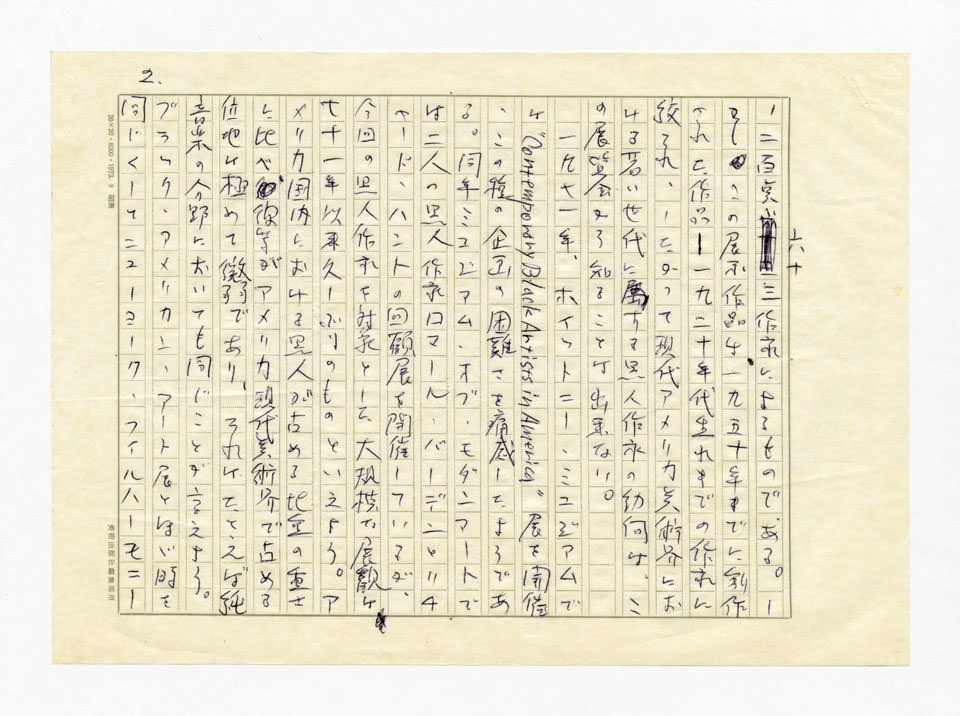 2.
六十
、二百点 三作家によるものである。し
かしこの展示作品は一九五十年までに制作
された作品―一九二十年代生れまでの作家に
絞られ、したがって現代アメリカ美術界にお
ける若い世代に属する黒人作家の幼何は、こ
の展覧会から知ることは出来ない。
一九七十一年、ホイットニー・ミュゼアムで
は "Contemporary Black Artists in America" 展を開催
し、この種の企画の困難さを痛感したようであ
る。同年ミュゼアム・オブ・モダンアートで
は二人の黒人作家ロマール・バーデンとリチ
ャード・ハントの回顧展を開催しているが、
今回の黒人作家を対象とした大規模な展観は
七十一年以来久しぶりのものといえよう。ア
メリカ国内における黒人が占める比重の重さ
に比べ彼等がアメリカ現代美術界で占める
位地は極めて微弱であり、それはたとえば純
音楽の分野においても同じことが言えよう。
ブラック・アメリカン・アート展とほぼ時を
同じくしてニューヨーク・フィルハーモニー
20×20・6000・1973.8 昭美
美術出版社編集部用